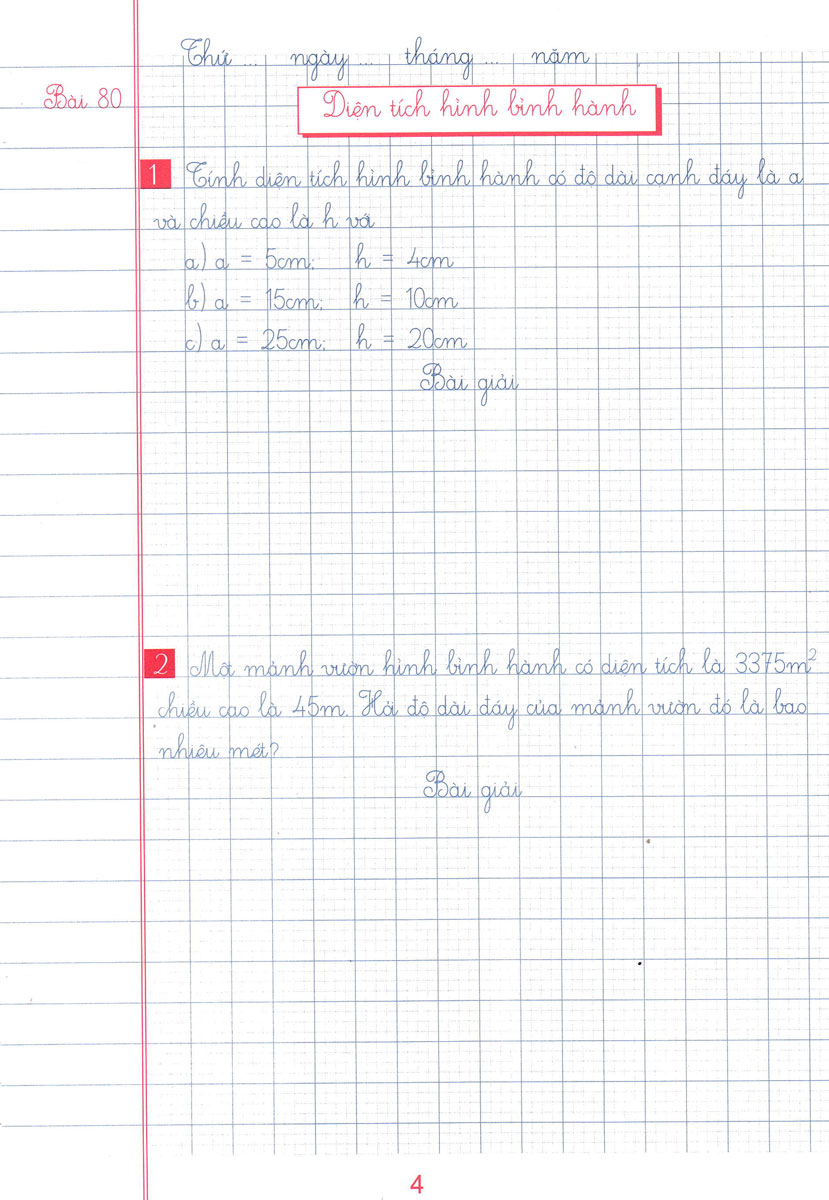 Thứ ... ngày ... tháng ... năm
Bài 80
Diện tích hình bình hành
1 Tính diện tích hình bình hành có độ dài cạnh đáy là a
và chiều cao là h với
a) a = 5cm; h = 4cm
b) a = 15cm; h = 10cm
c) a = 25cm; h = 20cm
Bài giải
2 Một mảnh vườn hình bình hành có diện tích là 3375m²
chiều cao là 45m. Hỏi độ dài đáy của mảnh vườn đó là bao
nhiêu mét?
Bài giải
4